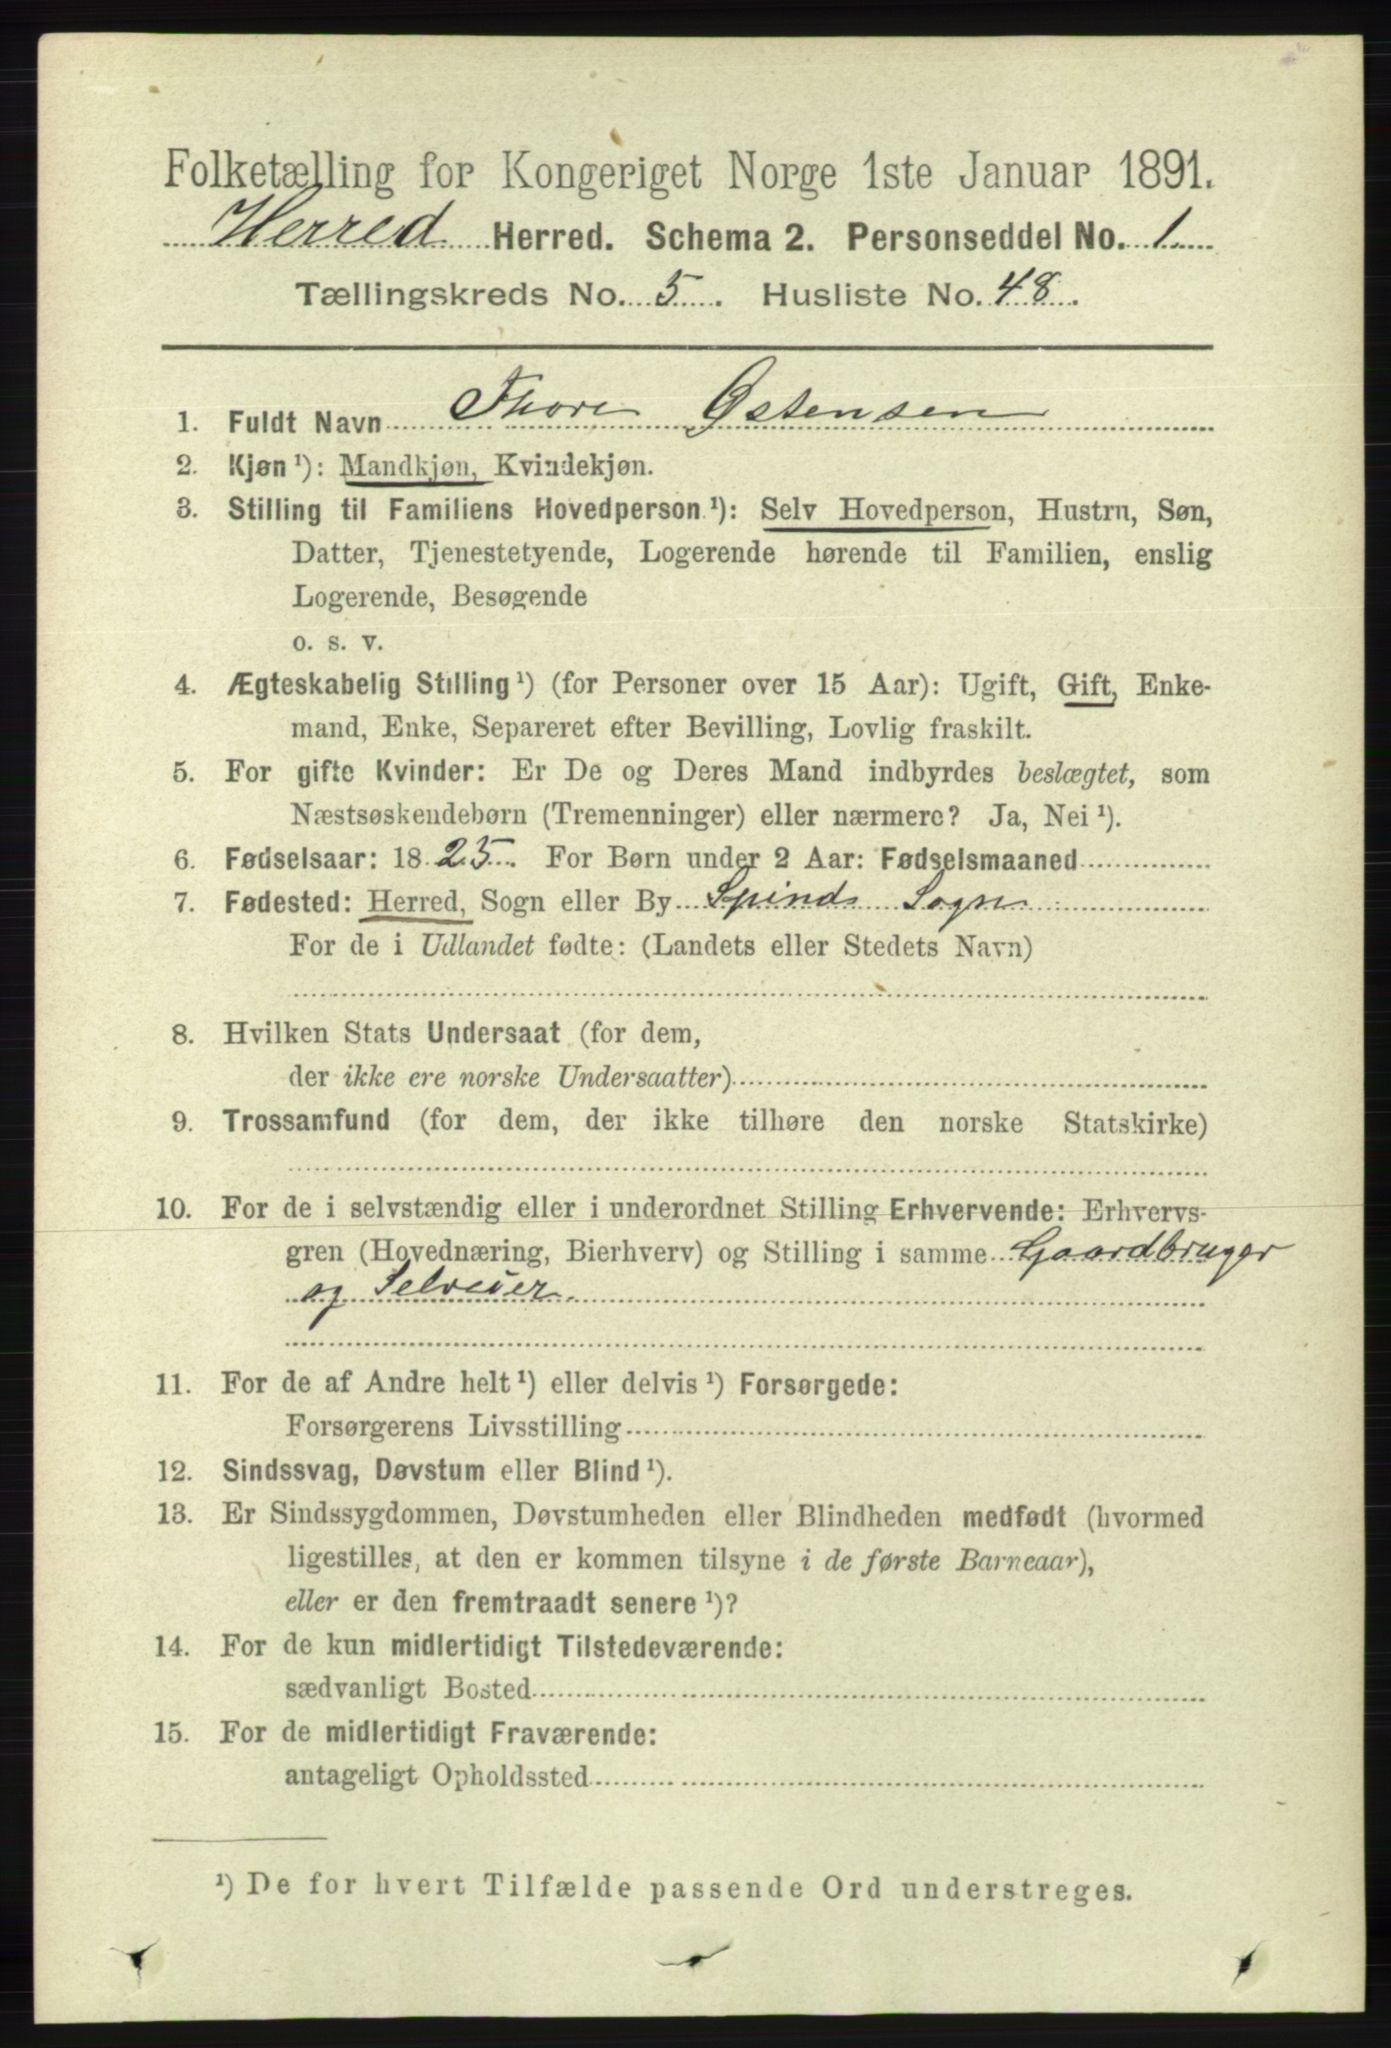 Folketælling for Kongeriget Norge 1ste Januar 1891.
Herred Herred. Schema 2. Personseddel No. 1
Tællingskreds No. 5. Husliste No. 48.
1. Fuldt Navn Thore Østensen
2. Kjøn ¹): Mandkjøn, Kvindekjøn.
3. Stilling til Familiens Hovedperson ¹): Selv Hovedperson, Hustru, Søn,
Datter, Tjenestetyende, Logerende hørende til Familien, enslig
Logerende, Besøgende
o. s. v.
4. Ægteskabelig Stilling ¹) (for Personer over 15 Aar): Ugift, Gift, Enke-
mand, Enke, Separeret efter Bevilling, Lovlig fraskilt.
5. For gifte Kvinder: Er De og Deres Mand indbyrdes beslægtet, som
Næstsøskendebørn (Tremenninger) eller nærmere? Ja, Nei ¹).
6. Fødselsaar: 1825. For Børn under 2 Aar: Fødselsmaaned
7. Fødested: Herred, Sogn eller By Spinds Sogn
For de i Udlandet fødte: (Landets eller Stedets Navn)
8. Hvilken Stats Undersaat (for dem,
der ikke ere norske Undersaatter)
9. Trossamfund (for dem, der ikke tilhøre den norske Statskirke)
10. For de i selvstændig eller i underordnet Stilling Erhvervende: Erhvervs-
gren (Hovednæring, Bierhverv) og Stilling i samme Gaardbruger
og Selveier.
11. For de af Andre helt ¹) eller delvis ¹) Forsørgede:
Forsørgerens Livsstilling
12. Sindssvag, Døvstum eller Blind ¹).
13. Er Sindssygdommen, Døvstumheden eller Blindheden medfødt (hvormed
ligestilles, at den er kommen tilsyne i de første Barneaar),
eller er den fremtraadt senere ¹)?
14. For de kun midlertidigt Tilstedeværende:
sædvanligt Bosted
15. For de midlertidigt Fraværende:
antageligt Opholdssted
¹) De for hvert Tilfælde passende Ord understreges.